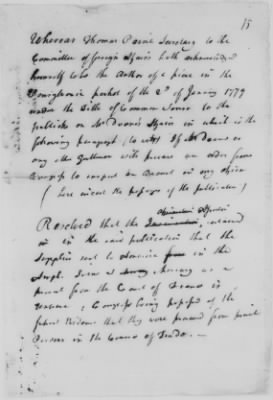 15
Whereas Thomas Paine Secretary to the
Committee of foreign Affairs hath acknowledged
himself to be the Author of a piece in the
Pensylvania packet of the 2d of January 1779
under the Title of Common Sense to the
publick on Mr Deane's Affairs in which is the
following paragraph (to wit) If Mr Deane or
any other Gentleman will procure an order from
Congress to inspect an Account in my office
(here insert the paragraph of the publication)
Resolved that the
in in the said publication that the
Supplies sent to America in the
a
present from the Court of France is
untrue, Congress being possessed of the
that they were procured from private
Persons in the Course of Trade. —